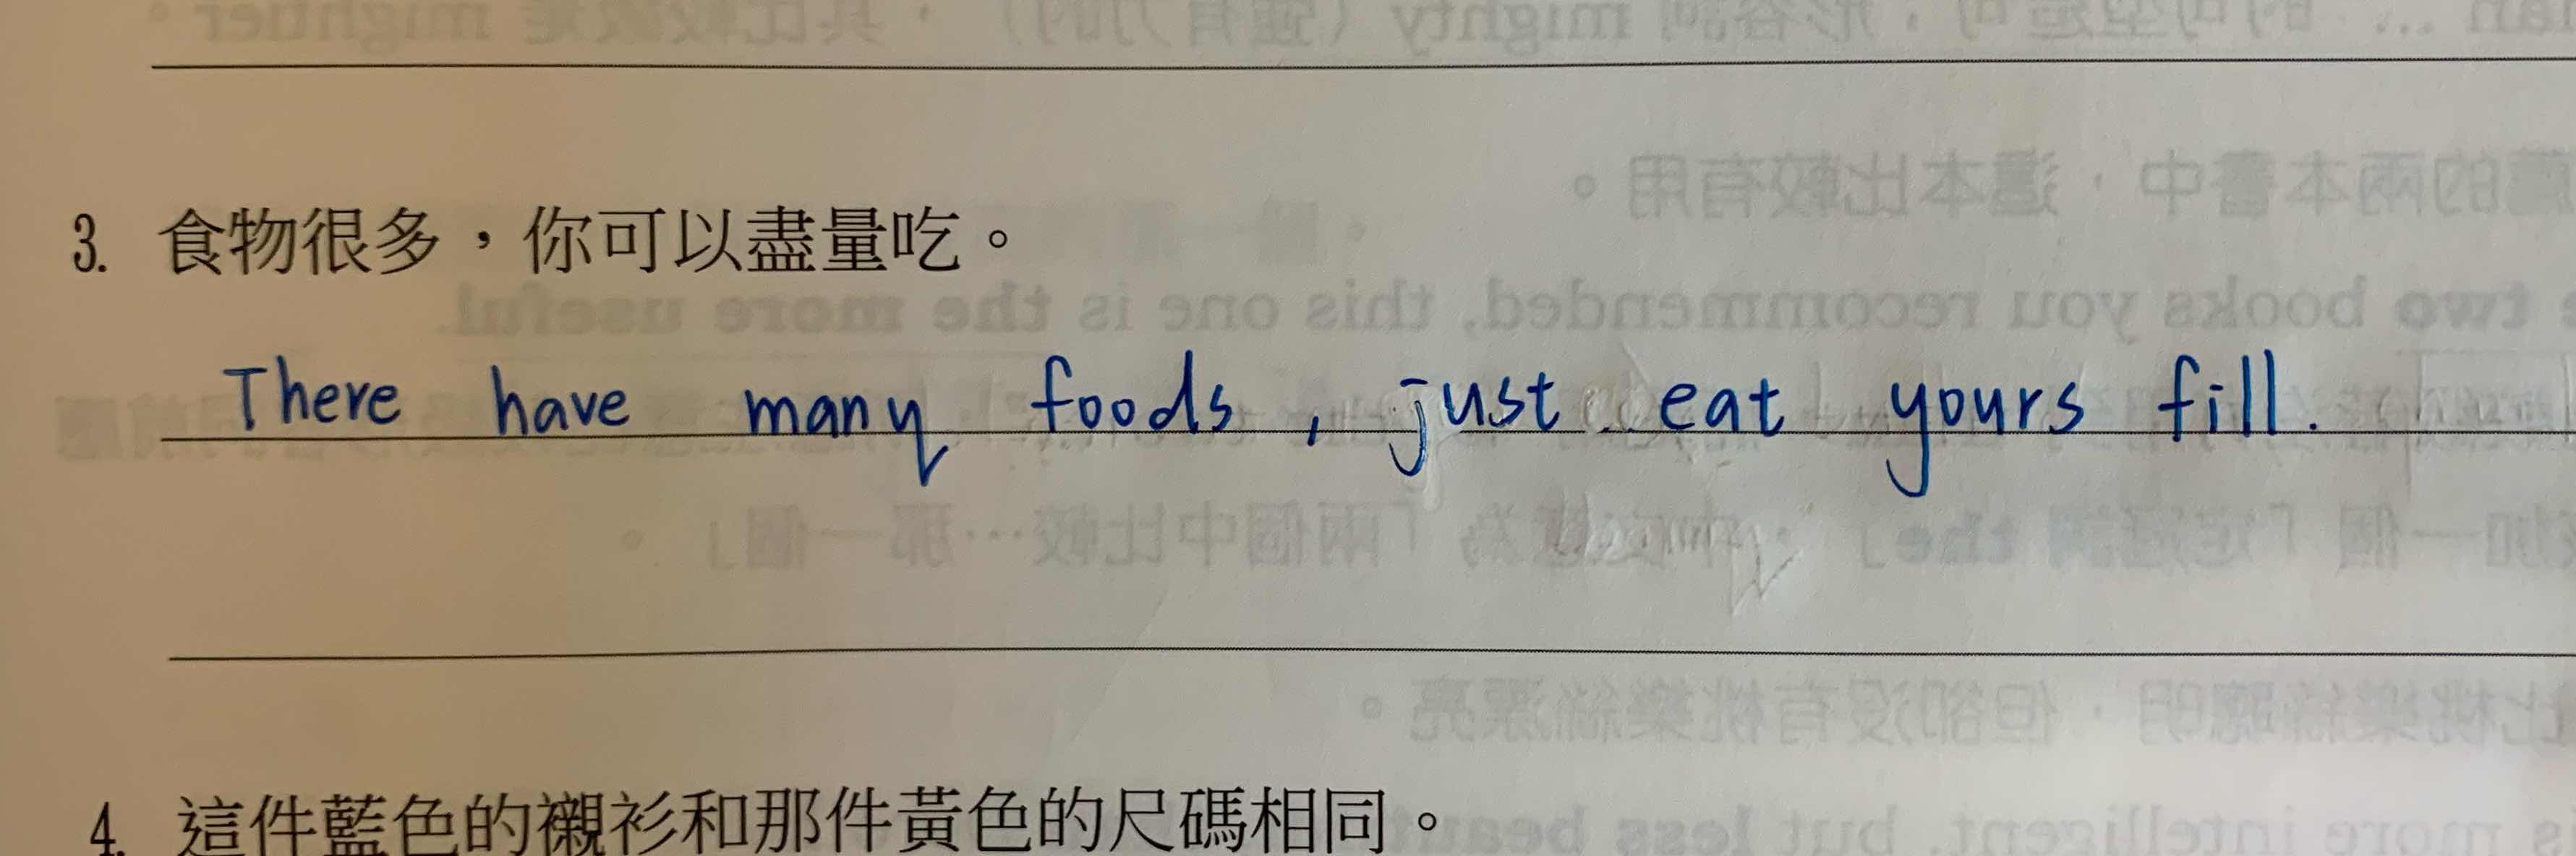 3. 食物很多，你可以盡量吃。
There have many foods, just eat yours fill.
4. 這件藍色的襯衫和那件黃色的尺碼相同。